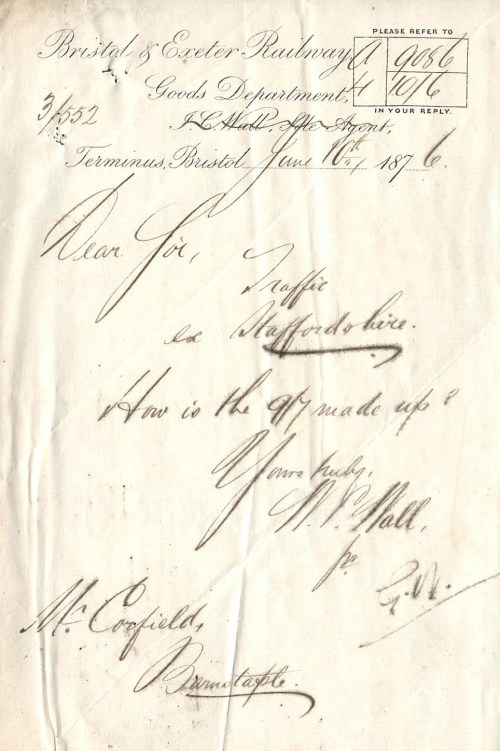 PLEASE REFER TO
Bristol & Exeter Railway
A 9086
Goods Department,
4 10/6
IN YOUR REPLY.
3/552
J. C. Wall, Agent,
Terminus, Bristol June 10th 1876.
Dear Sir,
Traffic
ex Staffordshire.
How is the 9/7 made up?
Yours truly,
Wall,
pr
G.W.
Mr Corfield,
Barnstaple.